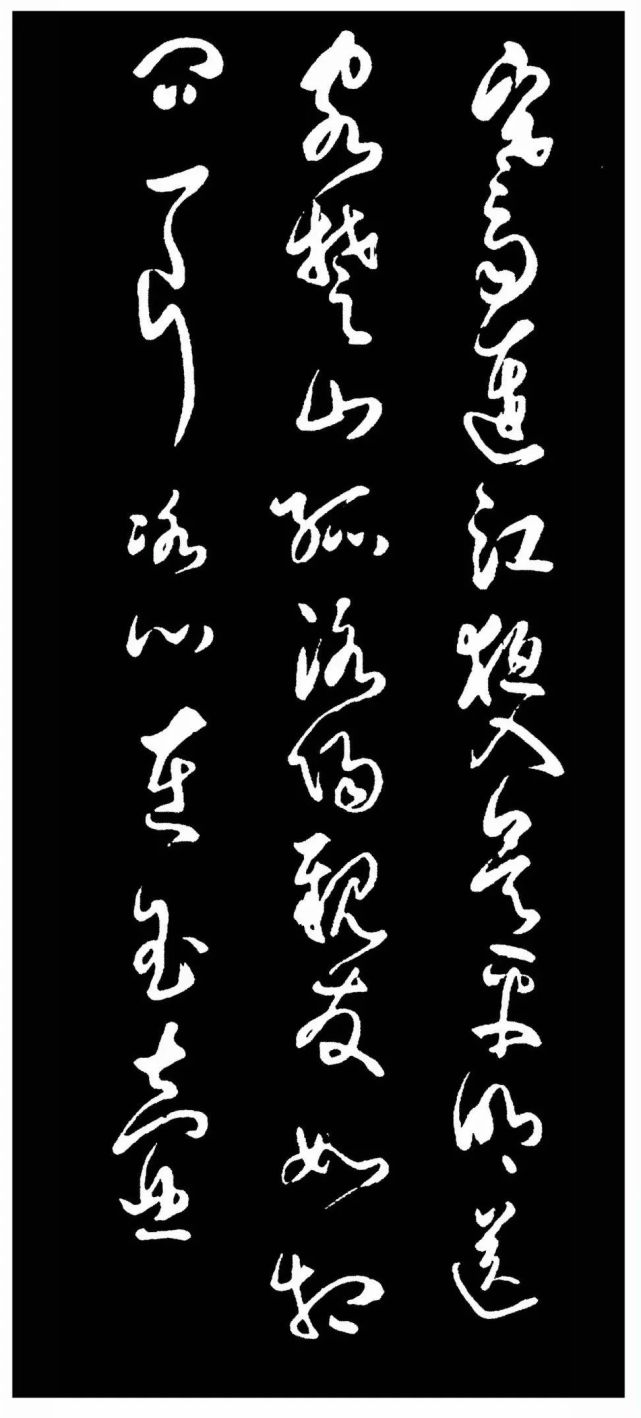 寒雨連江夜入吳平明送
客楚山孤洛陽親友如相
問一片冰心在玉壺